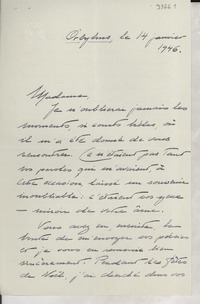 33661
Orbybus, le 14 janvier
1946.
Madame,
Je n'oublierai jamais les
moments si courts hélas où
il m'a été donné de vous
rencontrer. Ce n'étaient pas tant
vos paroles qui m'avaient, à
cette occasion laissé un souvenir
inoubliable: c'étaient vos yeux
— miroir de votre âme.
Vous avez eu ensuite la
bonté de m'envoyer vos poésies
et je vous en remercie bien
sincèrement. Pendant les fêtes
de Noël, j'ai cherché dans vos